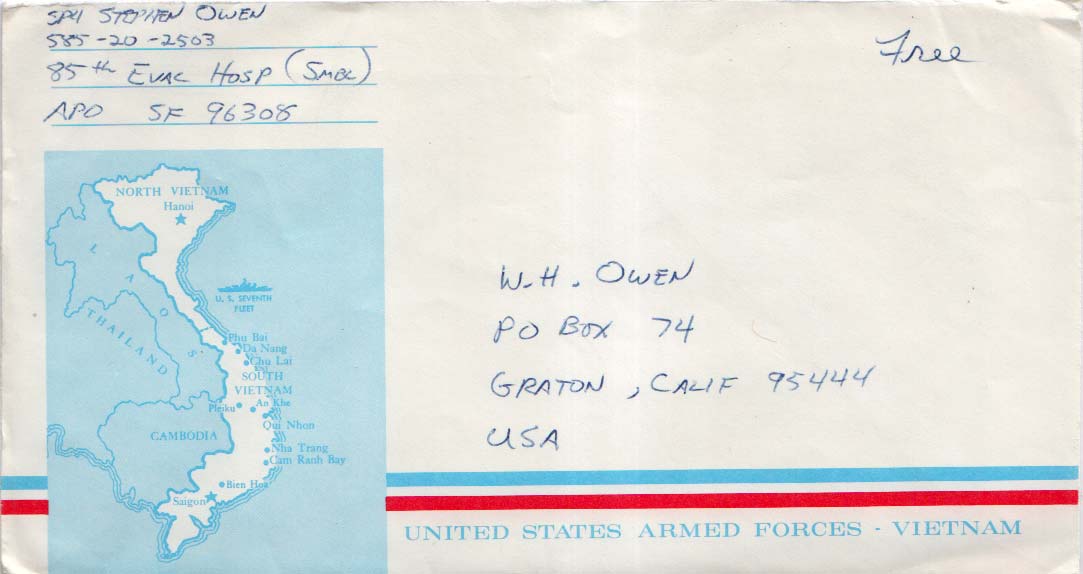 SP4 STEPHEN OWEN
585-20-2503
85th EVAC HOSP (SMBL)
APO SF 96308
Free
NORTH VIETNAM
Hanoi
LAOS
U. S. SEVENTH
FLEET
THAILAND
Phu Bai
Da Nang
Chu Lai
SOUTH
VIETNAM
Pleiku
An Khe
Qui Nhon
CAMBODIA
Nha Trang
Cam Ranh Bay
Bien Hoa
Saigon
W.H. OWEN
PO BOX 74
GRATON, CALIF 95444
USA
UNITED STATES ARMED FORCES - VIETNAM